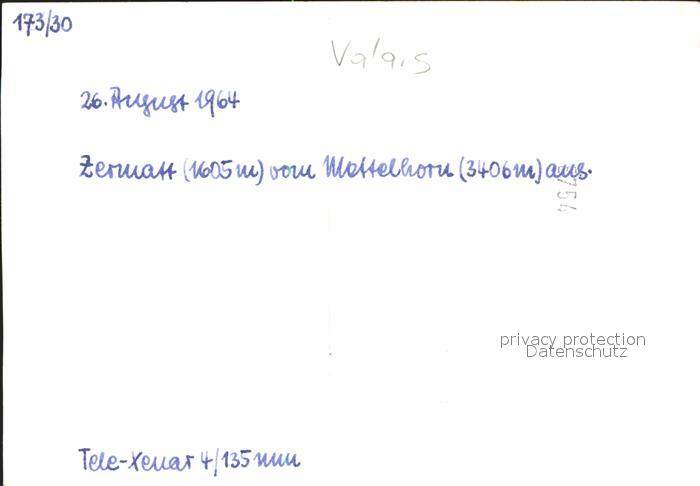 173/30
Valais
26. August 1964
Zermatt (1605m) vom Mettelhorn (3406m) aus.
754
privacy protection
Datenschutz
Tele-Xenar 4/135mm